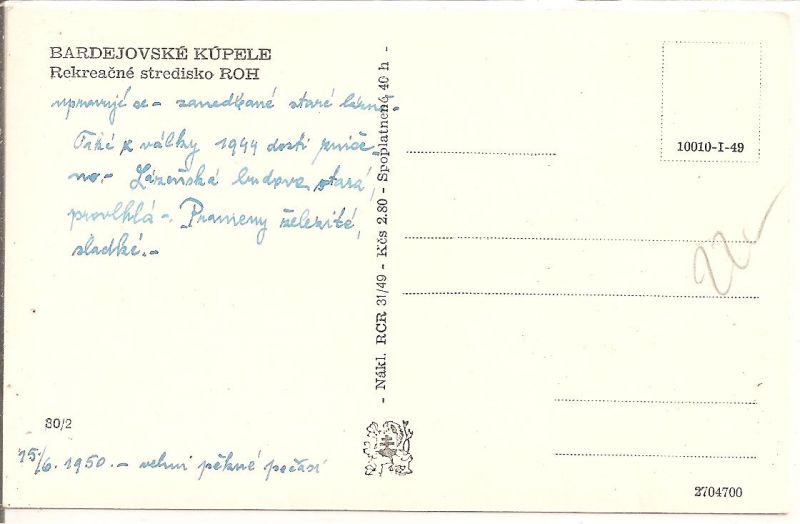 BARDEJOVSKÉ KÚPELE
Rekreačné stredisko ROH
upravují se - zanedbané staré lázně.
Také z války 1944 dosti zniče-
no.- Lázeňská budova stará,
provlhlá -. Prameny železité,
sladké.-
80/2
15/6. 1950. - velmi pěkné počasí
- Nákl. RCR 31/49 - Kčs 2.80 - Spoplatnené 40 h -
10010-I-49
2704700